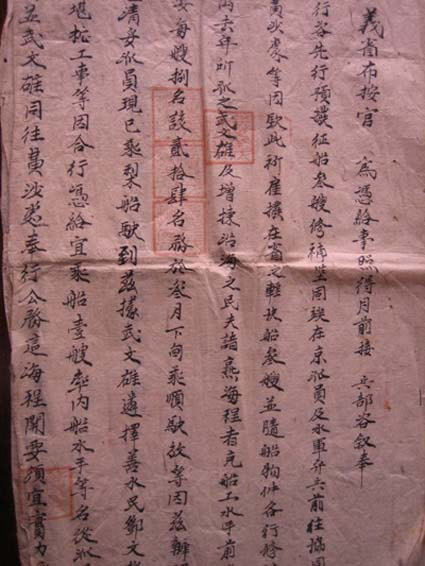 義省布按官 為憑給事照得月前接 兵部咨敘奉
行咨先行預撥征船叁艘修補堅固竢在京派員及水軍弁兵前往協同
黃沙處等因欽此所雇撥在省之輕快船叁艘並隨船狗件各行修
六年所派之武文雄及增揀沿海之民夫諳熟海程者充船工水手前
要每艘捌名該貳拾肆名務於叁月下旬乘順駛放等因茲辦
清妥派員現已乘梨船駛到茲據武文雄遴擇善水民鄧文
堪柁工事等因合行憑給宜乘船壹艘率內船水手等名從派
並武文雄同往黃沙處奉行公務這海程關要須宜實力